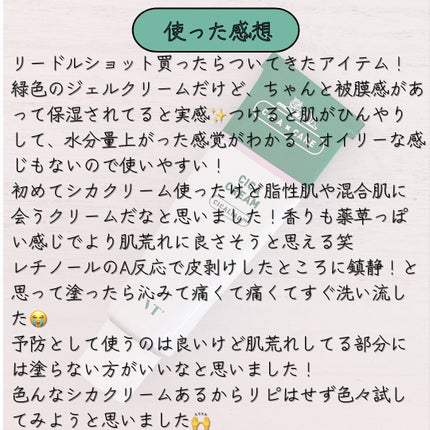 使った感想
リードルショット買ったらついてきたアイテム！
緑色のジェルクリームだけど、ちゃんと被膜感があ
って保湿されてると実感✨つけると肌がひんやり
して、水分量上がった感覚がわかる！オイリーな感
じもないので使いやすい！
初めてシカクリーム使ったけど脂性肌や混合肌に
会うクリームだなと思いました！香りも薬草っぽ
い感じでより肌荒れに良さそうと思える笑
レチノールのA反応で皮剥けしたところに鎮静！と
思って塗ったら沁みて痛くて痛くてすぐ洗い流し
た😭
予防として使うのは良いけど肌荒れしてる部分に
は塗らない方がいいなと思いました！
色んなシカクリームあるからリピはせず色々試し
てみようと思いました🙌
CICA
CREAM
VT